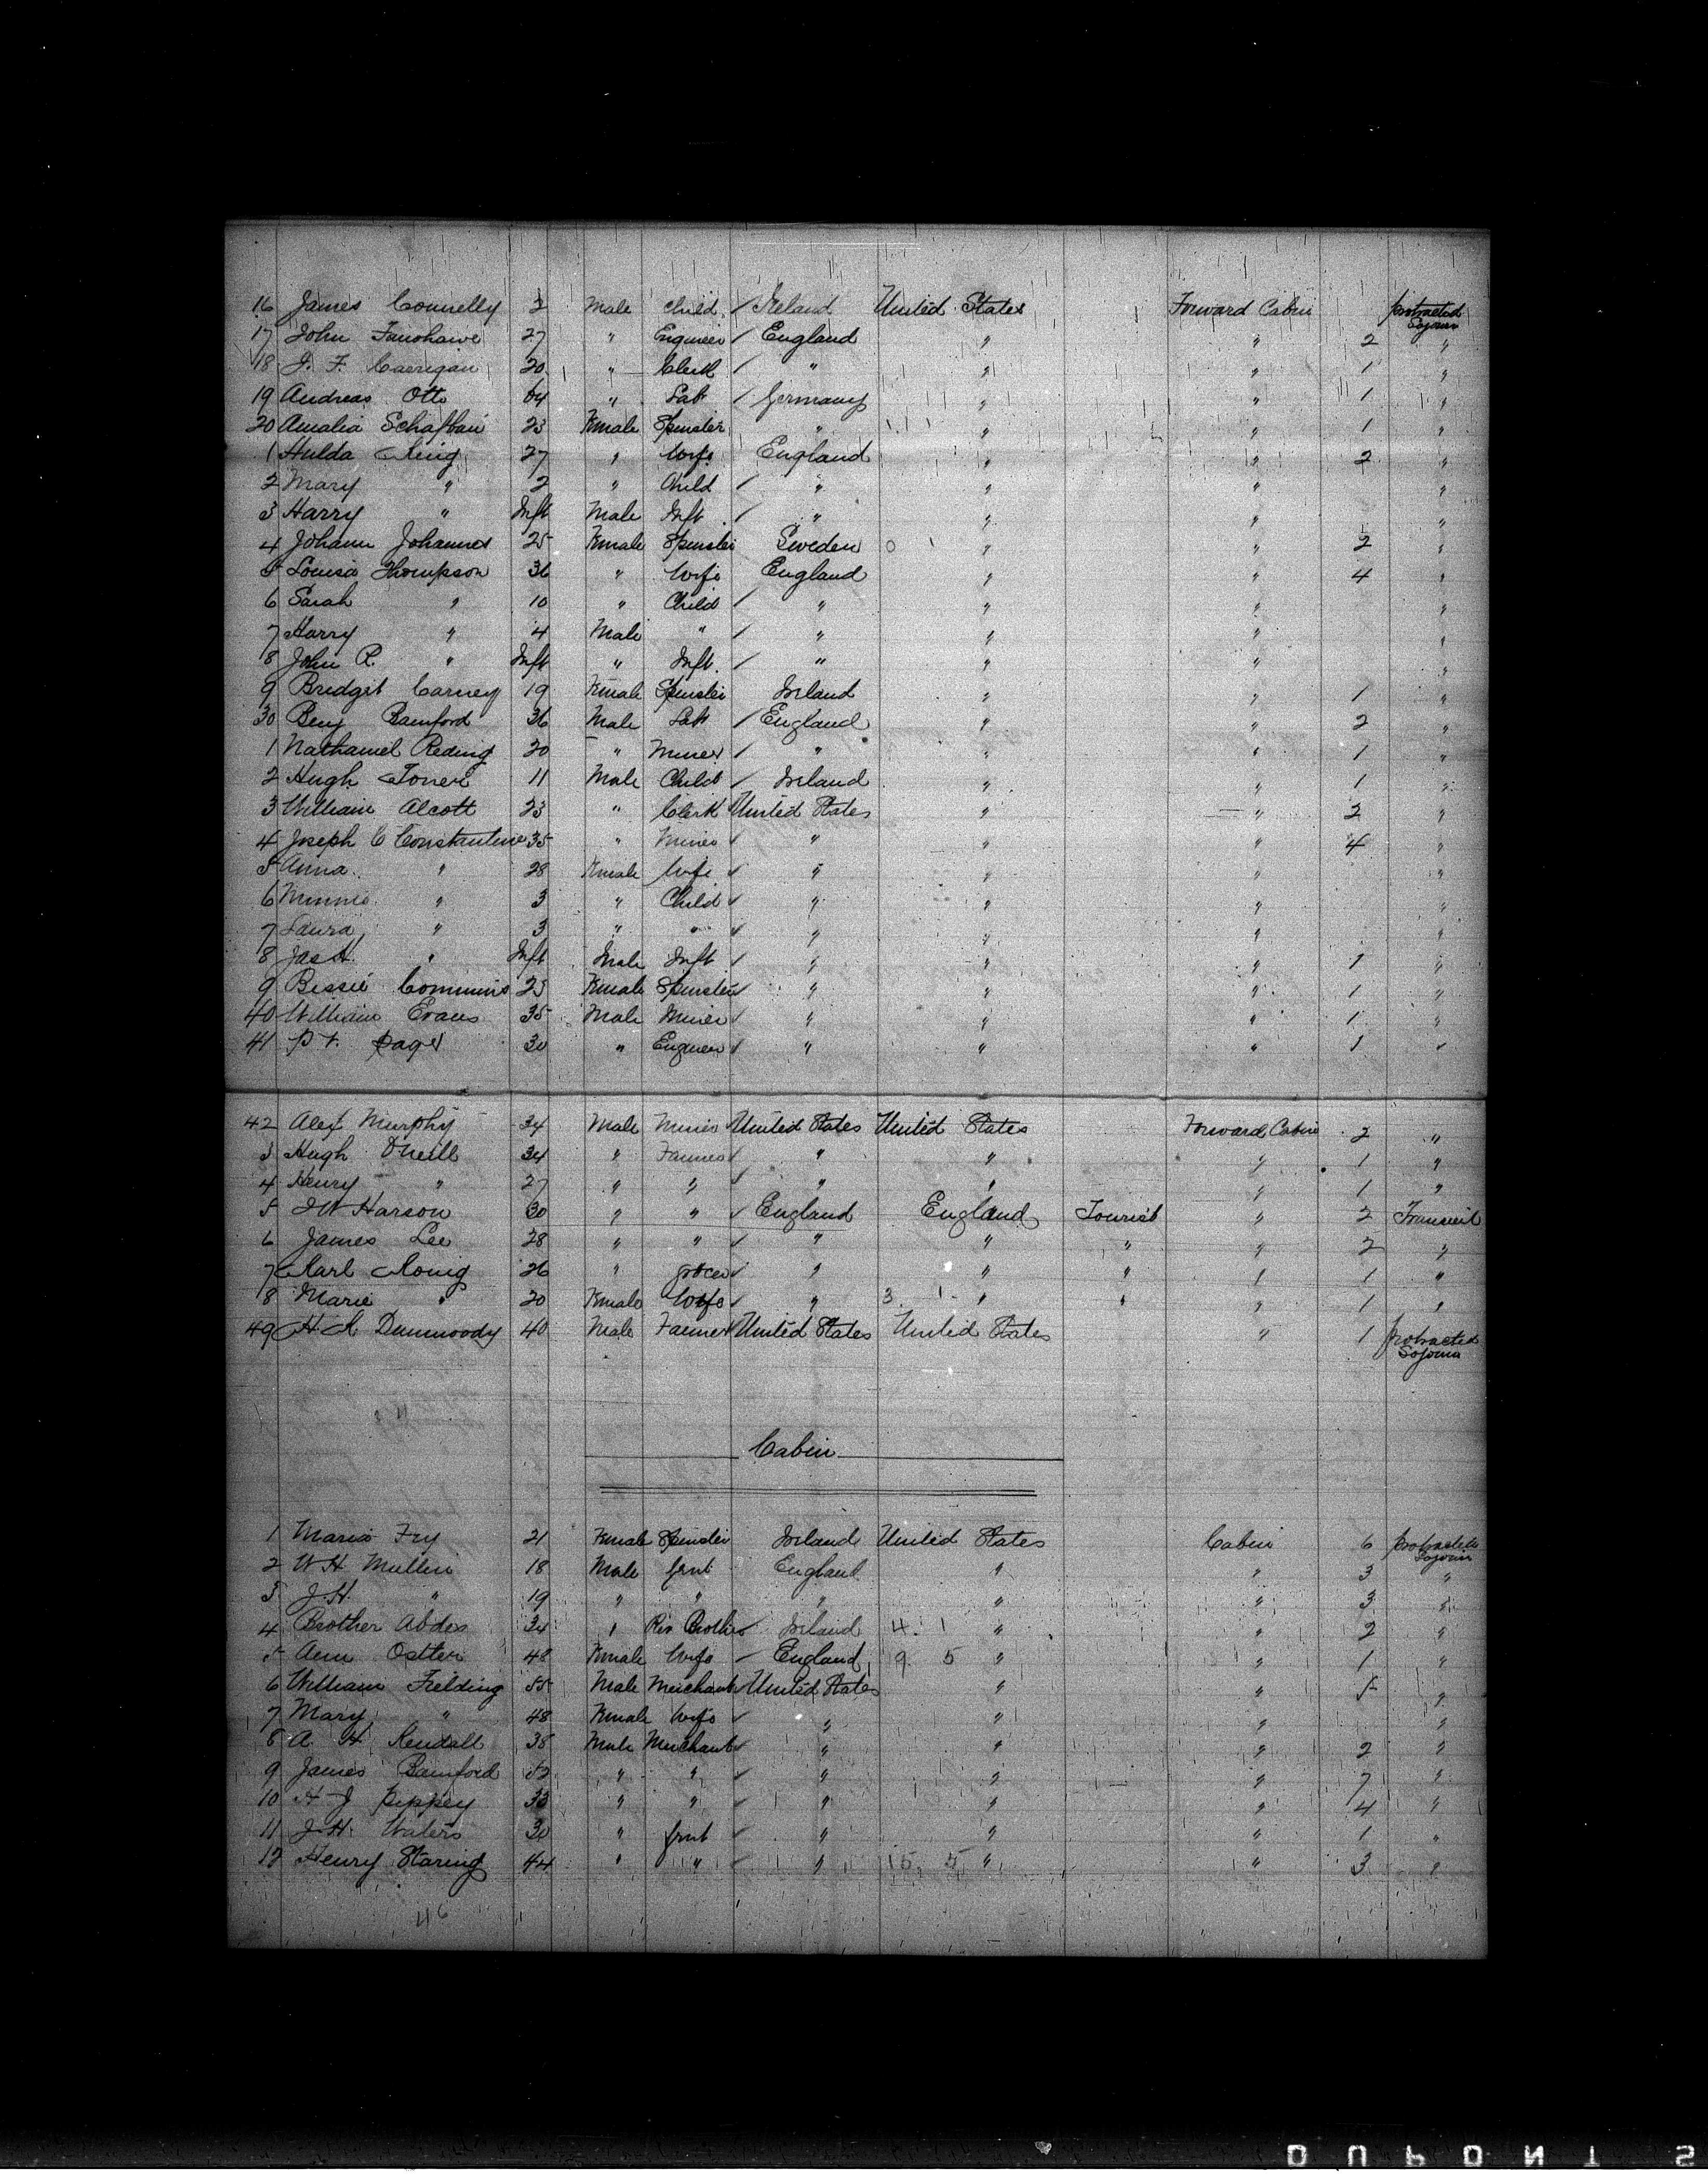 16 James Connelly 3 Male Child / Ireland United States Forward Cabin protracted Sojourn
17 John Fanshawe 27 " Engineer / England " " 2 "
18 J. F. Carrigan 20 " Clerk / " " " 1 "
19 Andreas Otto 64 " Lab / Germany " " 1 "
20 Amalia 23 Female Spinster " " " 1 "
1 Hulda King 27 " Wife England " " 2 "
2 Mary " 2 " Child / " " " "
3 Harry " Inft Male Inft / " " " "
4 Johann Johannes 25 Female Spinster Sweden 0 1 " " 2 "
5 Louisa Thompson 36 " Wife England " " 4 "
6 Sarah " 10 " Child / " " " "
7 Harry " 4 Male " / " " " "
8 John R. " Inft " Inft. / " " " "
9 Bridget Carney 19 Female Spinster Ireland " " 1 "
30 Benj Bamford 36 Male Lab / England " " 2 "
1 Nathaniel Reding 20 " Miner / " " " 1 "
2 Hugh 11 Male Child / Ireland " " 1 "
3 William Alcott 23 " Clerk United States " " 2 "
4 Joseph C Constantine 35 " Miner " " " 4 "
5 Anna " 28 Female Wife " " " "
6 Minnie " 3 " Child " " " "
7 Laura " 3 " " " " " "
8 Jas H. " Inft Male Inft / " " " 1 "
9 Bessie Commins 23 Female Spinster " " " 1 "
40 William Evans 35 Male Miner " " " 1 "
41 30 " Engineer " " " 1 "
42 Alex Murphy 34 Male Miner United States United States Forward Cabin 2 "
3 Hugh O'Neill 34 " Farmer " " " 1 "
4 Henry " 27 " " " " " 1 "
5 J W Harson 30 " " England England Tourist " 2 Transit
6 James Lee 28 " " " " " " 2 "
7 Karl Konig 26 " grocer " " " " 1 "
8 Marie " 20 Female Wife " 3 1 " " " 1 "
49 H A Dunwoody 40 Male Farmer United States United States " 1 protracted Sojourn
Cabin
1 Maria Fry 21 Female Spinster Ireland United States Cabin 6 protracted Sojourn
2 W H Mullin 18 Male gent England " " 3 "
3 J. H. " 19 " " " " " 3 "
4 Brother 34 " Rev Brother Ireland 4 1 " " 2 "
5 Ann 48 Female Wife England 9 5 " " 1 "
6 William Fielding 55 Male Merchant United States " " 5 "
7 Mary " 48 Female Wife " " " "
8 A. H Kendall 38 Male Merchant " " " 2 "
9 James Bamford 52 " " " " " 7 "
10 H J Pippey 33 " " " " " 4 "
11 J. H. Waters 30 " gent " " " 1 "
12 Henry Staring 44 " " " 15 5 " " 3 "
46
DUPONT S